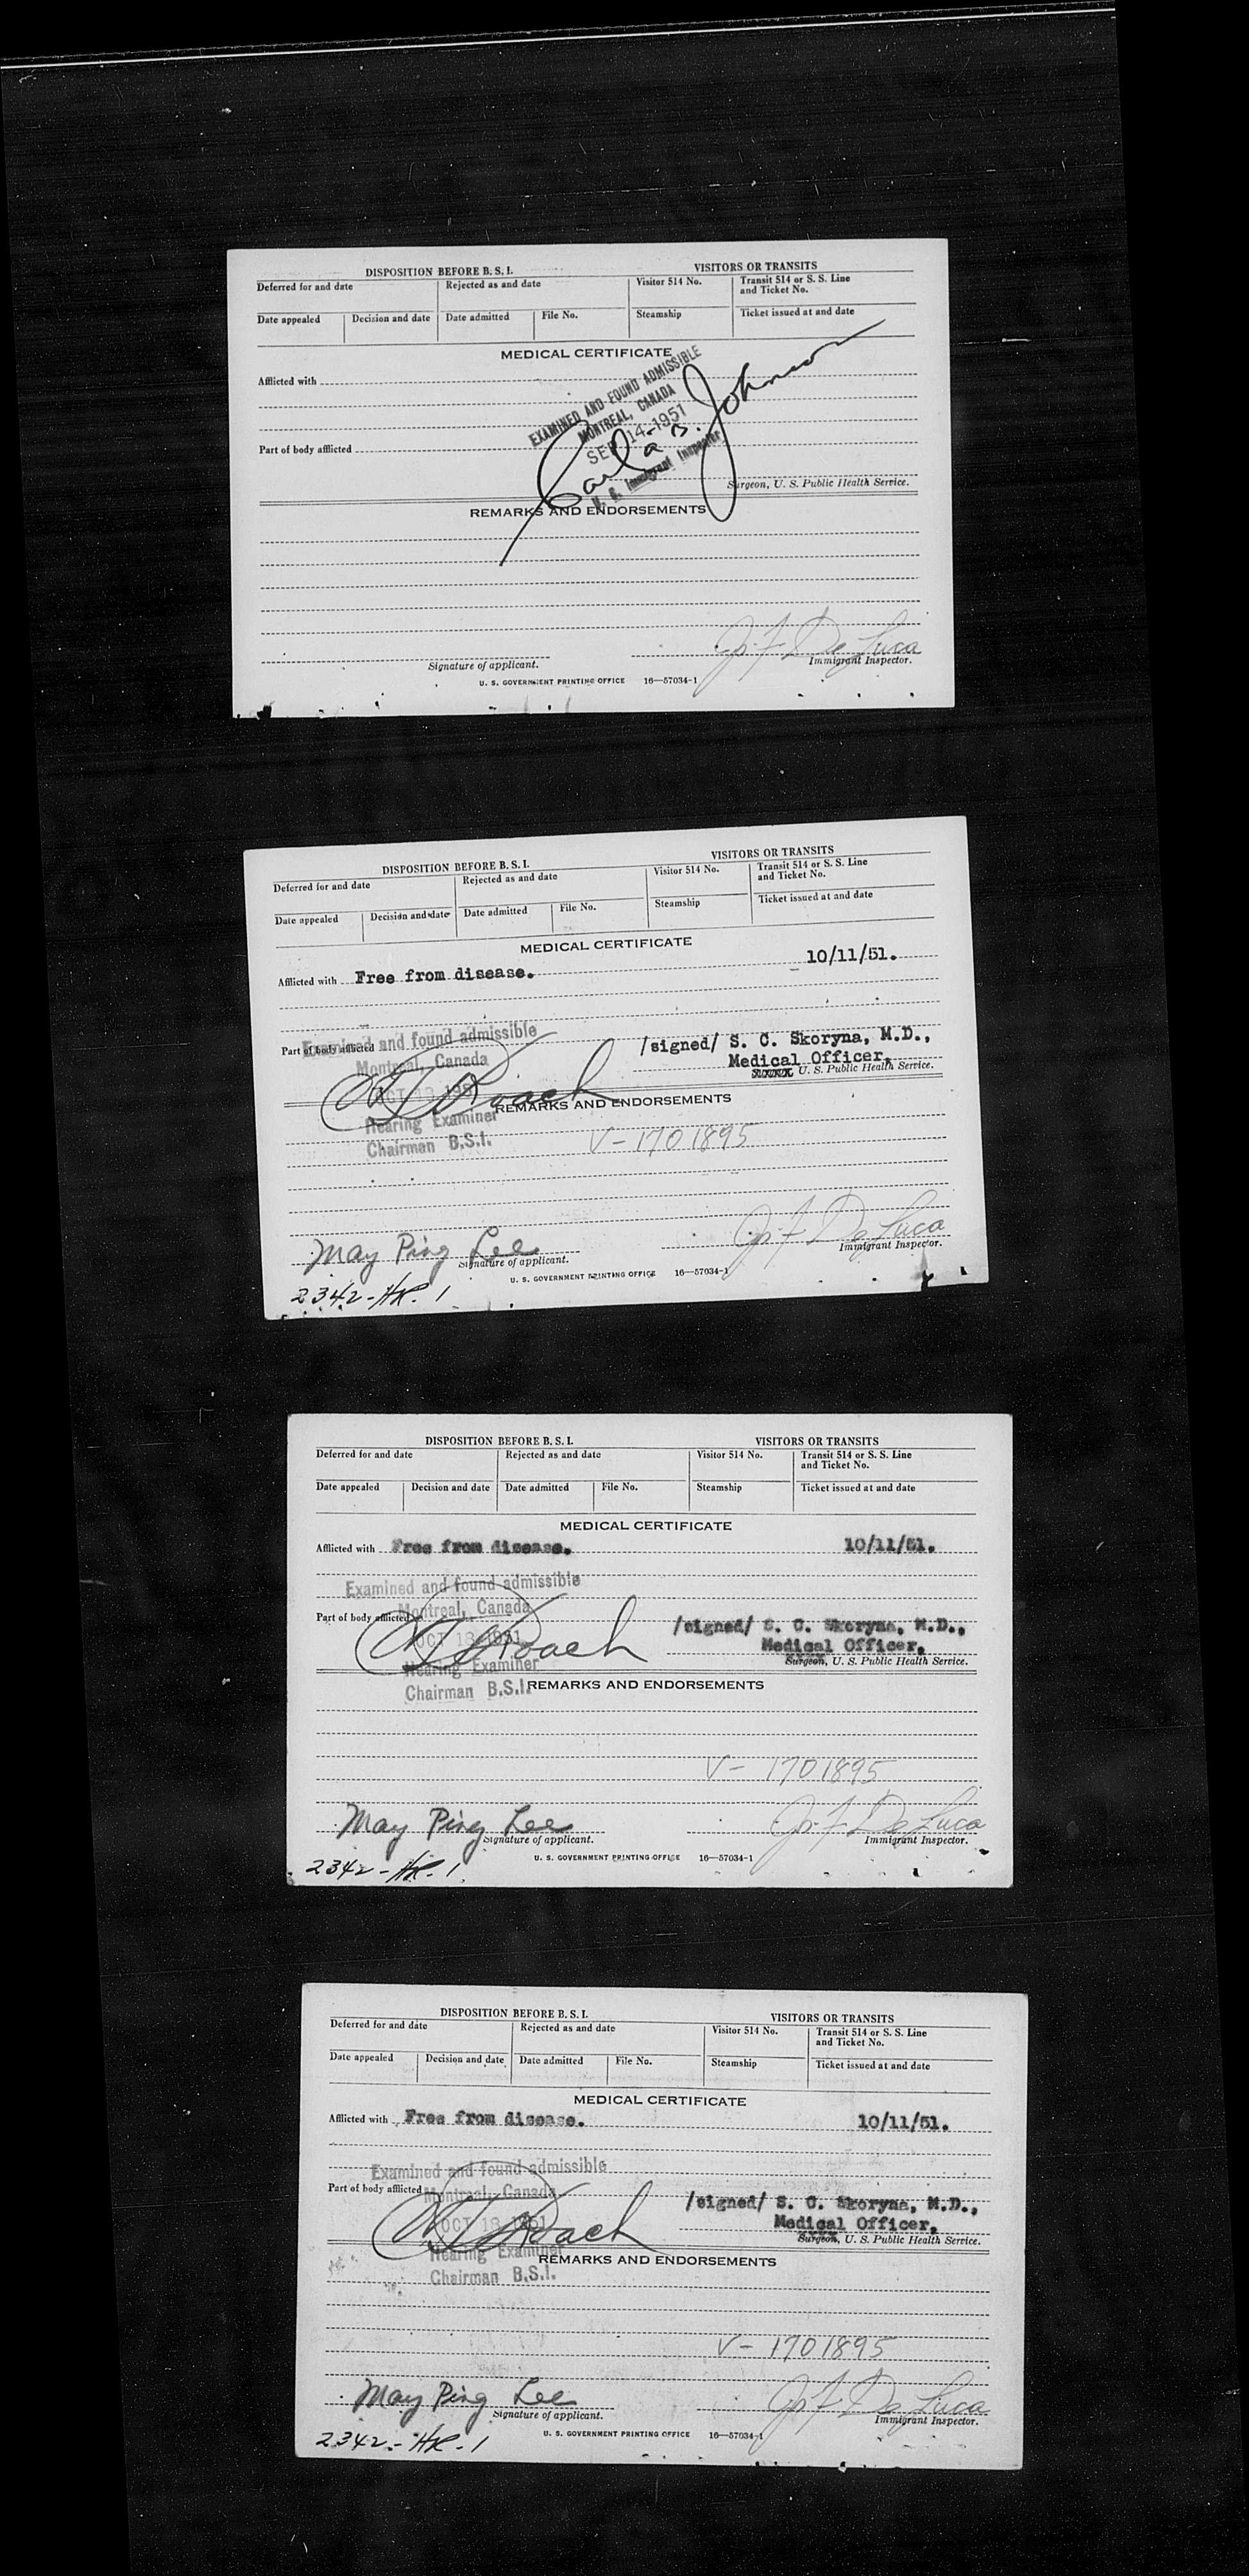 DISPOSITION BEFORE B. S. I.
VISITORS OR TRANSITS
Deferred for and date
Rejected as and date
Visitor 514 No.
Transit 514 or S. S. Line and Ticket No.
Date appealed
Decision and date
Date admitted
File No.
Steamship
Ticket issued at and date
MEDICAL CERTIFICATE
Afflicted with
EXAMINED AND FOUND ADMISSIBLE
MONTREAL, CANADA
SEP 14 1951
U. S. Immigrant Inspector
Carla B. Johnson
Part of body afflicted
Surgeon, U. S. Public Health Service.
REMARKS AND ENDORSEMENTS
De Luca
Signature of applicant.
Immigrant Inspector.
U. S. GOVERNMENT PRINTING OFFICE 16—57034-1
DISPOSITION BEFORE B. S. I.
VISITORS OR TRANSITS
Deferred for and date
Rejected as and date
Visitor 514 No.
Transit 514 or S. S. Line and Ticket No.
Date appealed
Decision and date
Date admitted
File No.
Steamship
Ticket issued at and date
MEDICAL CERTIFICATE
Afflicted with Free from disease. 10/11/51.
Examined and found admissible
Part of body afflicted
Montreal, Canada
/signed/ S. C. Skoryna, M.D.,
Medical Officer,
U. S. Public Health Service.
Roach
REMARKS AND ENDORSEMENTS
Hearing Examiner
Chairman B.S.I.
V-1701895
May Ping Lee
De Luca
Signature of applicant.
Immigrant Inspector.
U. S. GOVERNMENT PRINTING OFFICE 16—57034-1
2342-HR-1
DISPOSITION BEFORE B. S. I.
VISITORS OR TRANSITS
Deferred for and date
Rejected as and date
Visitor 514 No.
Transit 514 or S. S. Line and Ticket No.
Date appealed
Decision and date
Date admitted
File No.
Steamship
Ticket issued at and date
MEDICAL CERTIFICATE
Afflicted with Free from disease. 10/11/51.
Examined and found admissible
Part of body afflicted
Montreal, Canada
OCT 13 1951
Roach
/signed/ S. C. Skoryna, M.D.,
Medical Officer,
Surgeon, U. S. Public Health Service.
Hearing Examiner
Chairman B.S.I.
REMARKS AND ENDORSEMENTS
V-1701895
May Ping Lee
De Luca
Signature of applicant.
Immigrant Inspector.
U. S. GOVERNMENT PRINTING OFFICE 16—57034-1
2342-HR-1
DISPOSITION BEFORE B. S. I.
VISITORS OR TRANSITS
Deferred for and date
Rejected as and date
Visitor 514 No.
Transit 514 or S. S. Line and Ticket No.
Date appealed
Decision and date
Date admitted
File No.
Steamship
Ticket issued at and date
MEDICAL CERTIFICATE
Afflicted with Free from disease. 10/11/51.
Examined and found admissible
Part of body afflicted
Montreal, Canada
OCT 13 1951
Roach
/signed/ S. C. Skoryna, M.D.,
Medical Officer,
Surgeon, U. S. Public Health Service.
Hearing Examiner
REMARKS AND ENDORSEMENTS
Chairman B.S.I.
V-1701895
May Ping Lee
De Luca
Signature of applicant.
Immigrant Inspector.
U. S. GOVERNMENT PRINTING OFFICE 16—57034-1
2342-HR-1